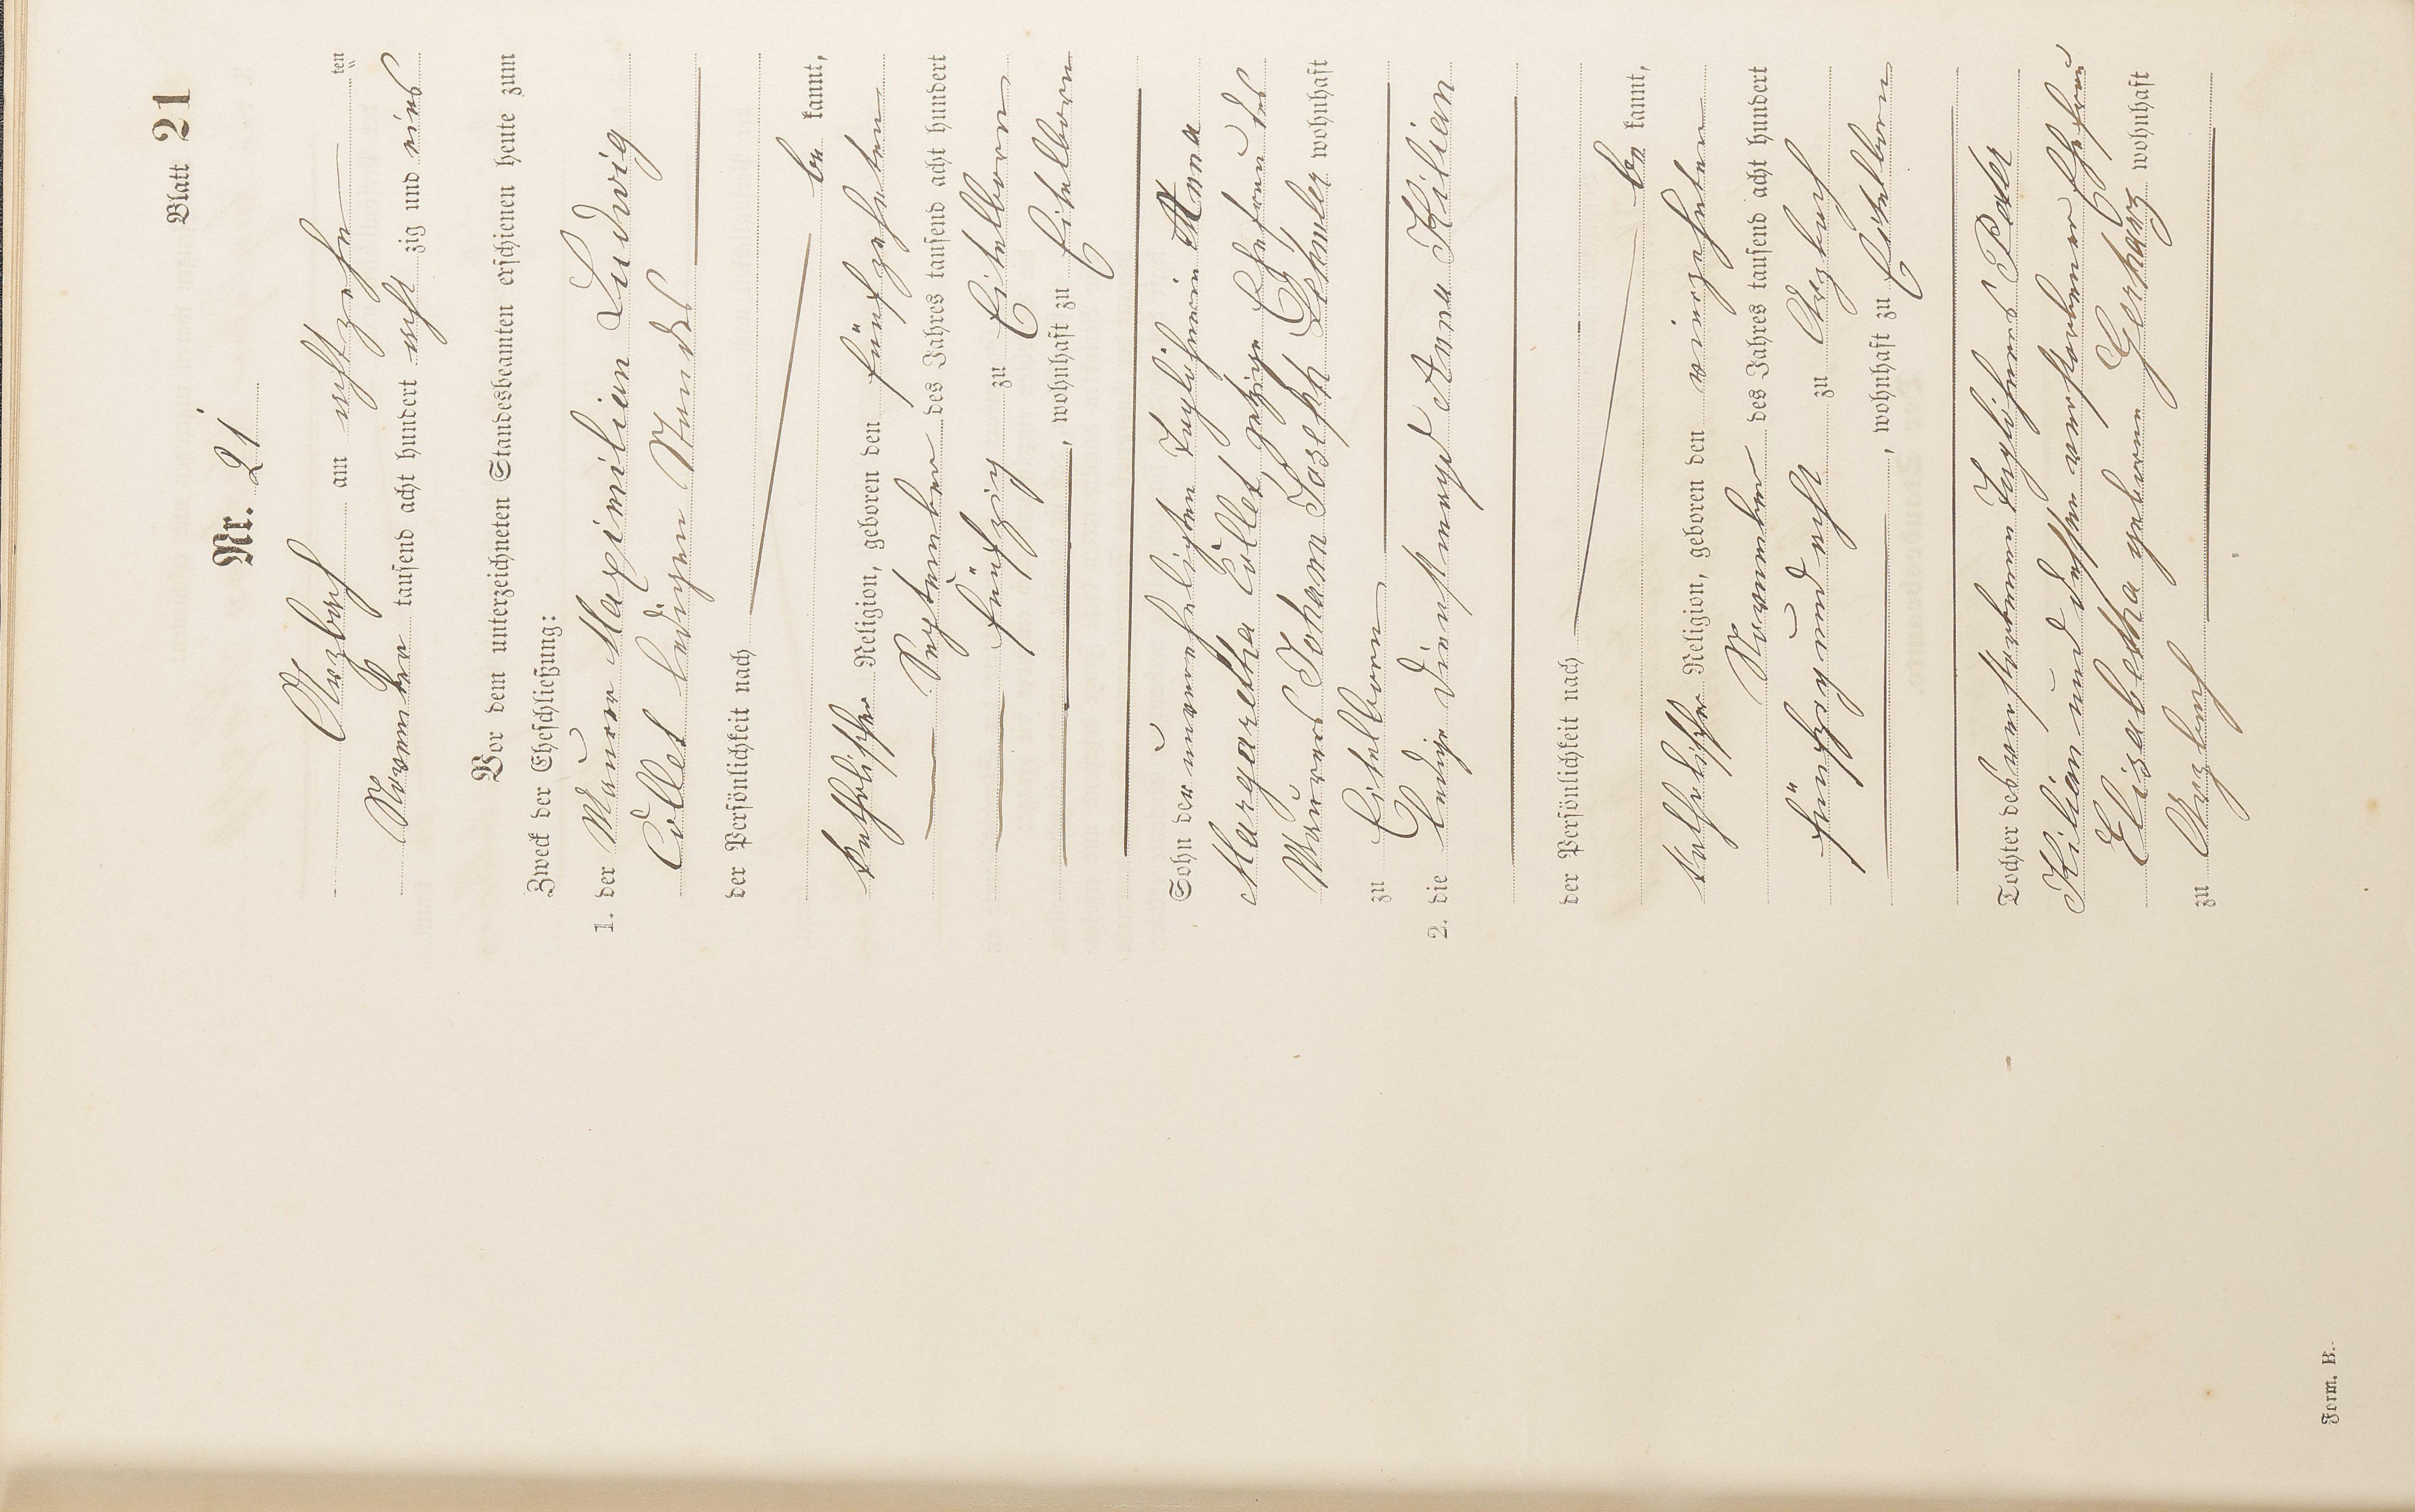 Blatt 21
Nr. 21
Arzbach am achtzehn ten
November tausend acht hundert acht zig und eins
Vor dem unterzeichneten Standesbeamten erschienen heute zum
Zweck der Eheschließung:
1. der Maurer Maximilian Ludwig
Collet ledigen Standes
der Persönlichkeit nach
be kannt,
katholischer Religion, geboren den fünfzehnten
September des Jahres tausend acht hundert
fünfzig zu Eitelborn
, wohnhaft zu Eitelborn
Sohn der unverehelichten Taglöhnerin Anna
Margaretha Collet jetzige Ehefrau des
Maurers Johann Joseph wohnhaft
zu Eitelborn
2. die ledige Dienstmagd Anna Kilian
der Persönlichkeit nach
be kannt,
katholischer Religion, geboren den vierzehnten
November des Jahres tausend acht hundert
fünfzig und acht zu Arzbach
, wohnhaft zu Eitelborn
Tochter des verstorbenen Taglöhners Peter
Kilian und dessen verstorbener Ehefrau
Elisabetha geborene Gerharz wohnhaft
zu Arzbach
Form. B.